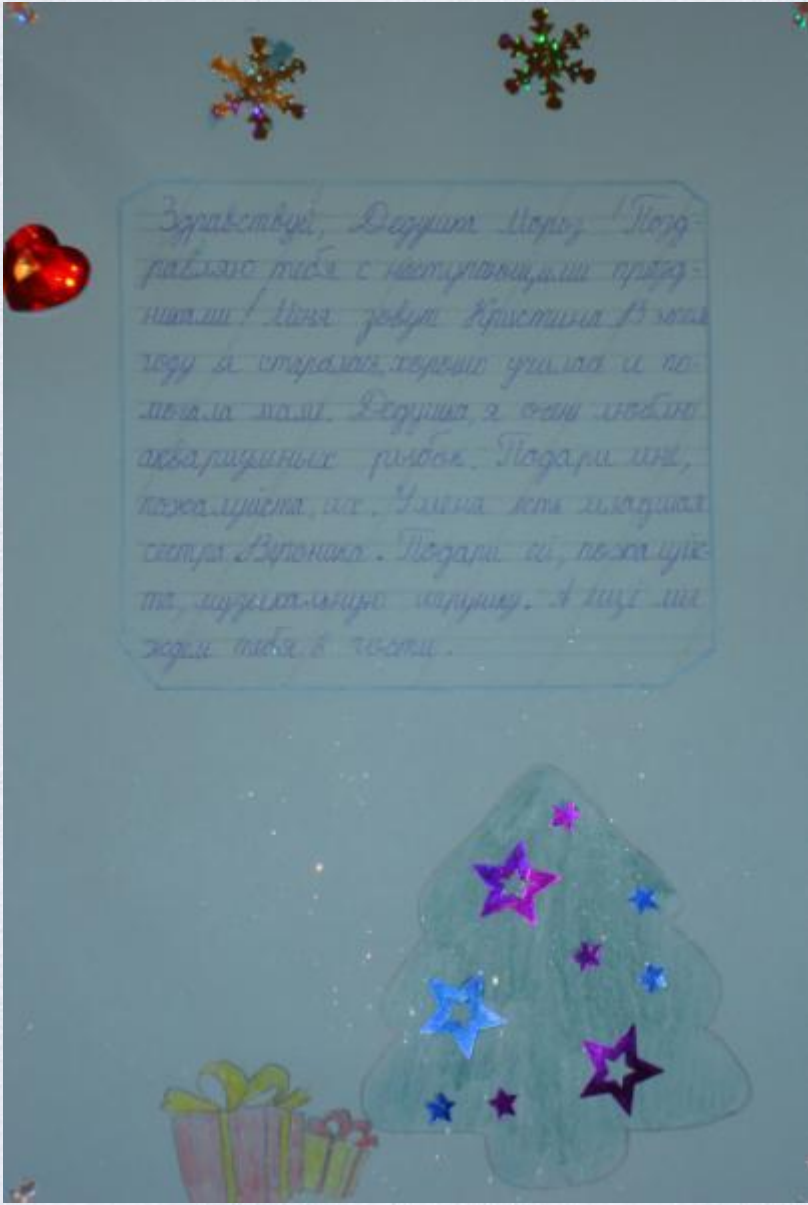 Здравствуй, Дедушка Мороз! Позд-
равляю тебя с наступающими празд-
никами! Меня зовут Кристина. В этом
году я старалась хорошо училась и по-
могала маме. Дедушка, я очень люблю
аквариумных рыбок. Подари мне,
пожалуйста, их. У меня есть младшая
сестра Вероника. Подари ей, пожалуйс-
та, музыкальную игрушку. А ещё мы
ждём тебя в гости.